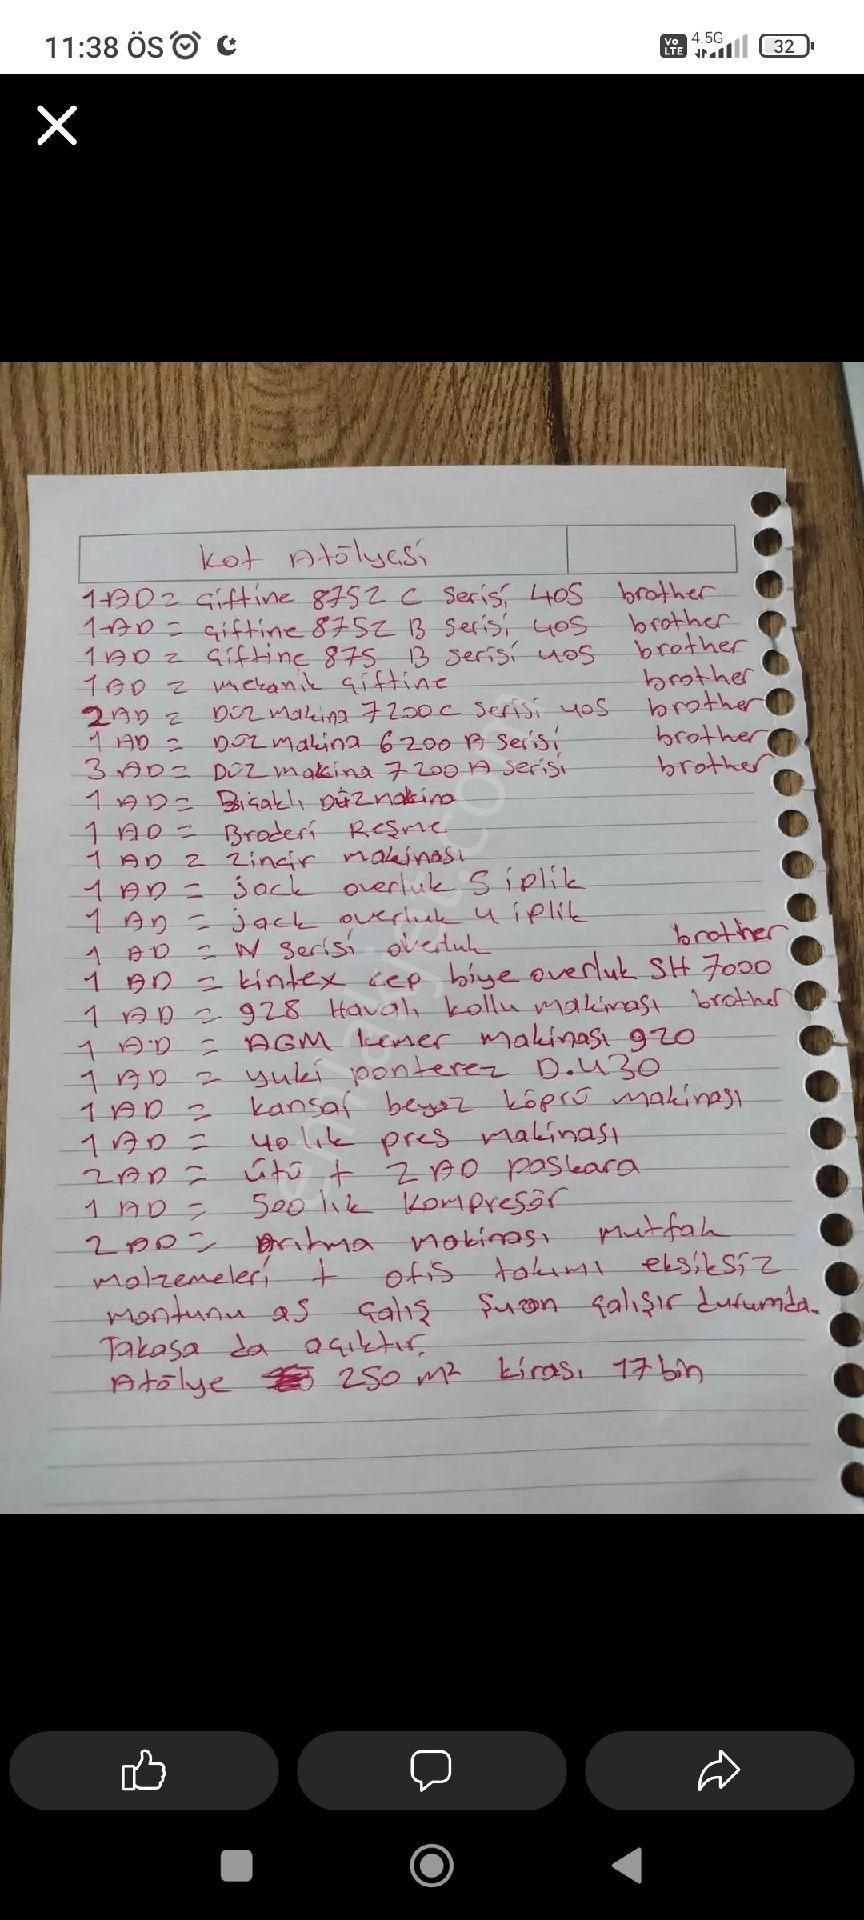 11:38 ÖS
Vo LTE 4.5G 32
Kot Atölyesi
1 AD = Çiftine 8752 C Serisi 405 brother
1 AD = Çiftine 8752 B Serisi 405 brother
1 AD = Çiftine 875 B Serisi 405 brother
1 AD = mekanik Çiftine brother
2 AD = Düz makina 7200 C Serisi 405 brother
1 AD = Düz makina 6200 A Serisi brother
3 AD = Düz makina 7200 A Serisi brother
1 AD = Bıçaklı Düz makina
1 AD = Broderi Reşme
1 AD = Zincir makinası
1 AD = jack overluk 5 iplik
1 AD = jack overluk 4 iplik
1 AD = N Serisi overluk brother
1 AD = kintex cep biye overluk SH 7000
1 AD = 928 Havalı kollu makinası brother
1 AD = AGM kemer makinası 920
1 AD = yuki ponterez D.430
1 AD = kansai beyaz köprü makinası
1 AD = 40 lık pres makinası
2 AD = ütü + 2 AD paskara
1 AD = 500 lık Kompresör
2 AD = Arıtma makinası mutfak
malzemeleri + ofis takımı eksiksiz
montunu as çalış Şuan çalışır durumda.
Takasa da açıktır.
Atölye 250 m² kirası 17 bin
emlakjet.com